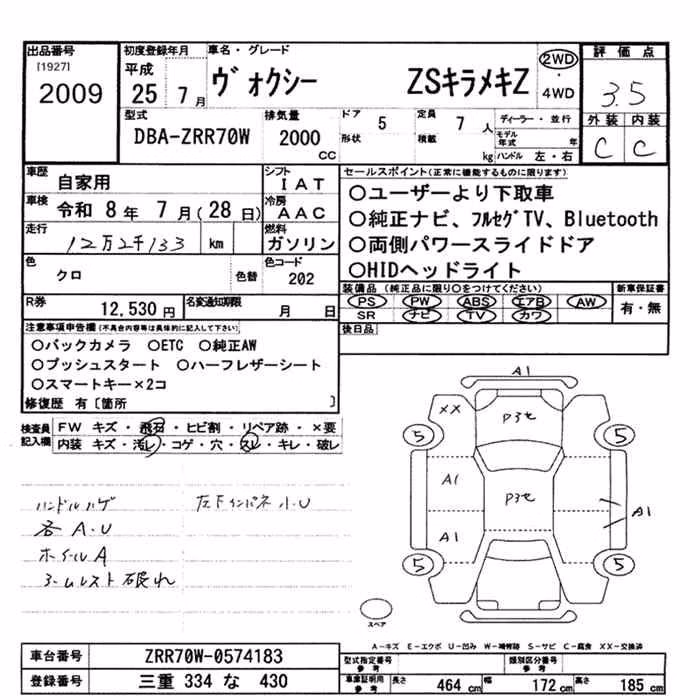 出品番号
[1927]
2009
初度登録年月
平成
25年 7月
車名・グレード
ヴォクシー ZSキラメキZ
2WD
・
4WD
評価点
3.5
外装 内装
C C
型式
DBA-ZRR70W
排気量
2000
cc
ドア 5
形状
定員 7 人
積載 kg
ディーラー・並行
モデル年式 年
ハンドル 左・右
車歴
自家用
シフト
IAT
車検 令和 8年 7月(28日)
冷房
AAC
走行
12万2千133 km
燃料
ガソリン
色
クロ
色替
色コード
202
R券
12,530円
名変通知期限
月 日
セールスポイント(正常に機能するものに限ります)
○ユーザーより下取車
○純正ナビ、フルセグTV、Bluetooth
○両側パワースライドドア
○HIDヘッドライト
装備品(純正品に限り○をつけてください)
PS PW ABS エアB AW
SR ナビ TV カワ
新車保証書
有・無
後日品
注意事項申告欄(不具合内容等は具体的に記入して下さい)
○バックカメラ ○ETC ○純正AW
○プッシュスタート ○ハーフレザーシート
○スマートキー×2コ
修復歴 有〔箇所 〕
検査員
記入欄
FW キズ・飛石・ヒビ割・リペア跡・×要
内装 キズ・汚レ・コゲ・穴・スレ・キレ・破レ
ハンドルハゲ
左下インパネ小U
各A・U
ホイールA
アームレスト破れ
A1
XX
P3セ
5
5
A1
P3セ
A1
A1
5
5
スペア
A-キズ E-エクボ U-凹み W-補修跡 S-サビ C-腐食 XX-交換済
車台番号
ZRR70W-0574183
登録番号
三重 334 な 430
型式指定番号
参考
類別区分番号
参考
車庫証明用
参考
長さ 464 cm 幅 172 cm 高さ 185 cm